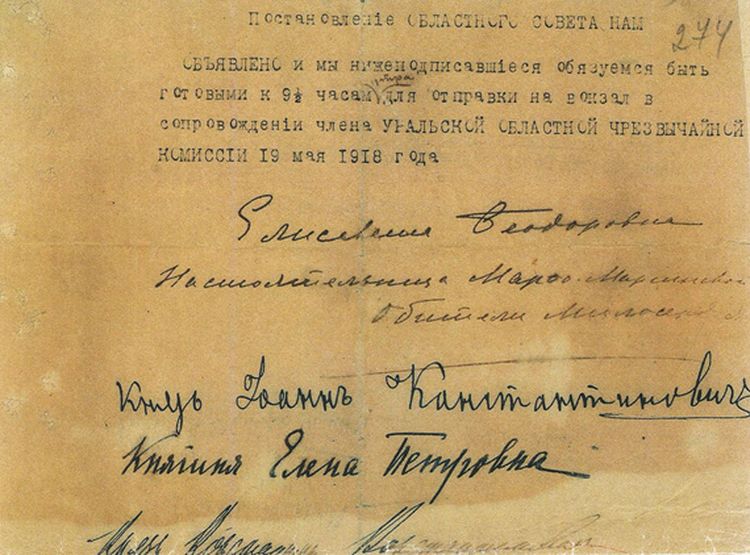 Постановленіе ОБЛАСТНОГО СОВЕТА НАМ
274
ОБЪЯВЛЕНО и мы нижеподписавшіеся обязуемся быть
утра
готовыми к 9½ часам для отправки на вокзал в
сопровожденіи члена УРАЛЬСКОЙ ОБЛАСТНОЙ ЧРЕЗВЫЧАЙНОЙ
КОМИССІИ 19 мая 1918 года
Елисавета Ѳеодоровна
Настоятельница Марфо-Мариинской
Обители
Князь Іоаннъ Константиновичъ
Княгиня Елена Петровна
Князь Константин